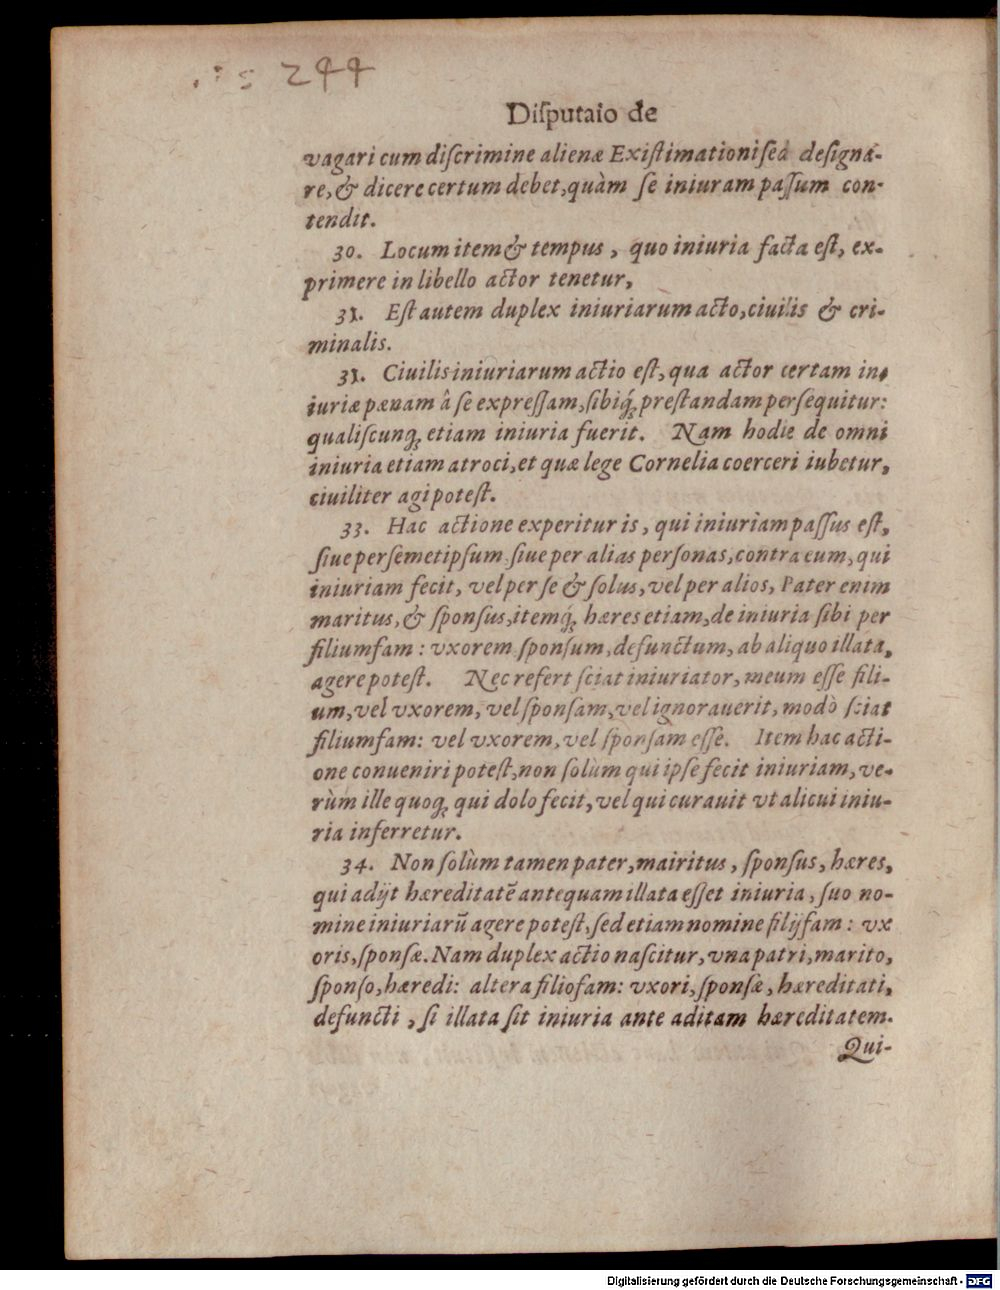 244
Diſputaio de
vagari cum diſcrimine alienæ Exiſtimationi ſed deſigna-
re, & dicere certum debet, quàm ſe iniuram paſſum con-
tendit.
30. Locum item & tempus, quo iniuria facta eſt, ex-
primere in libello actor tenetur,
31. Eſt autem duplex iniuriarum acto, ciuilis & cri-
minalis.
31. Ciuilis iniuriarum actio eſt, qua actor certam in-
iuriæ pænam â ſe expreſſam, ſibiq́; preſtandam perſequitur:
qualiſcunq; etiam iniuria fuerit. Nam hodie de omni
iniuria etiam atroci, et quæ lege Cornelia coerceri iubetur,
ciuiliter agi poteſt.
33. Hac actione experitur is, qui iniuriam paſſus eſt,
ſiue per ſemetipſum ſiue per alias perſonas, contra eum, qui
iniuriam fecit, vel per ſe & ſolus, vel per alios, Pater enim
maritus, & ſponſus, itemq́; hæres etiam, de iniuria ſibi per
filiumfam: vxorem ſponſum, defunctum, ab aliquo illata,
agere poteſt. Nec refert ſciat iniuriator, meum eſſe fili-
um, vel vxorem, vel ſponſam, vel ignorauerit, modò ſciat
filiumfam: vel vxorem, vel ſponſam eſſe. Item hac acti-
one conueniri poteſt, non ſolùm qui ipſe fecit iniuriam, ve-
rùm ille quoq; qui dolo fecit, vel qui curauit vt alicui iniu-
ria inferretur.
34. Non ſolùm tamen pater, mairitus, ſponſus, hæres,
qui adijt hæreditatē antequam illata eſſet iniuria, ſuo no-
mine iniuriarū agere poteſt, ſed etiam nomine filijfam: vx
oris, ſponſæ. Nam duplex actio naſcitur, vna patri, marito,
ſponſo, hæredi: altera filiofam: vxori, ſponſæ, hæreditati,
defuncti, ſi illata ſit iniuria ante aditam hæreditatem.
Qui-
Digitalisierung gefördert durch die Deutsche Forschungsgemeinschaft - DFG